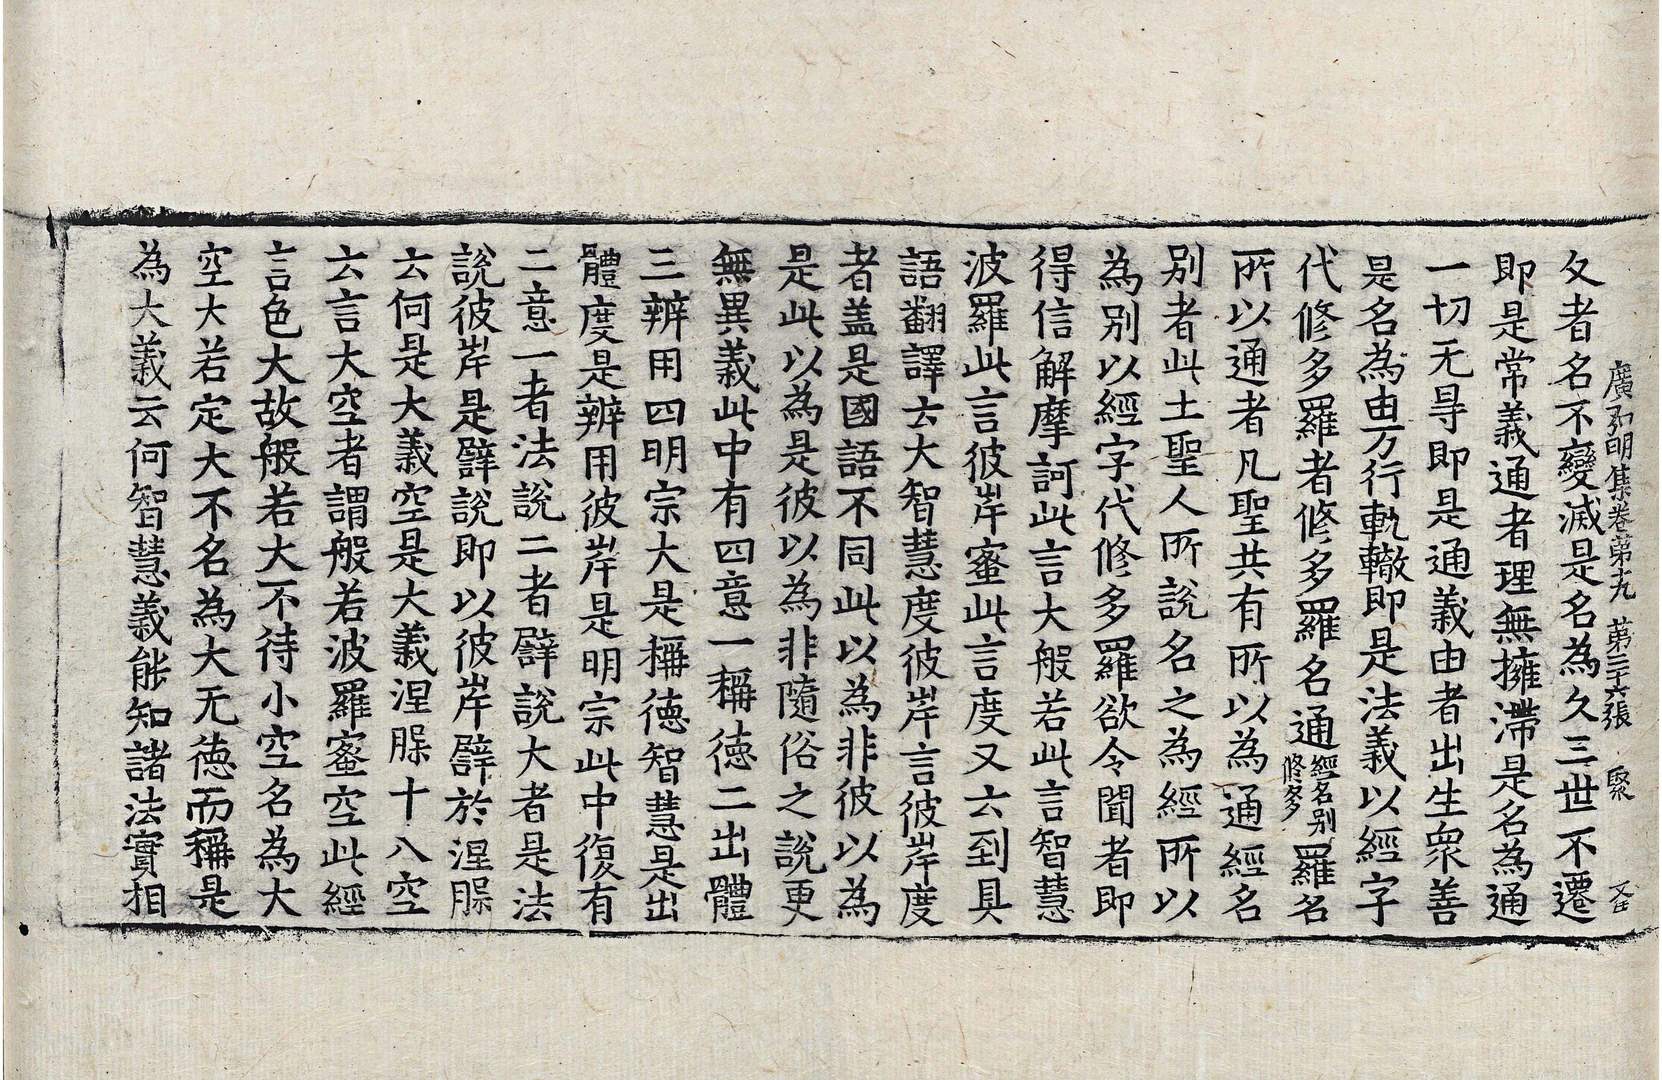 廣弘明集卷第十九 第三十六張 聚
久者名不變滅是名為久三世不遷
即是常義通者理無擁滯是名為通
一切无㝵即是通義由者出生衆善
是名為由万行軌轍即是法義以經字
代修多羅者修多羅名通經名别修多羅名
所以通者凡聖共有所以為通經名
别者此土聖人所說名之為經所以
為别以經字代修多羅欲令聞者即
得信解摩訶此言大般若此言智慧
波羅此言彼岸蜜此言度又云到具
語翻譯云大智慧度彼岸言彼岸度
者盖是國語不同此以為非彼以為
是此以為是彼以為非隨俗之說更
無異義此中有四意一稱德二出體
三辨用四明宗大是稱德智慧是出
體度是辨用彼岸是明宗此中復有
二意一者法說二者譬說大者是法
說彼岸是譬說即以彼岸譬於涅脲
云何是大義空是大義涅脲十八空
云言大空者謂般若波羅蜜空此經
言色大故般若大不待小空名為大
空大若定大不名為大无德而稱是
為大義云何智慧義能知諸法實相